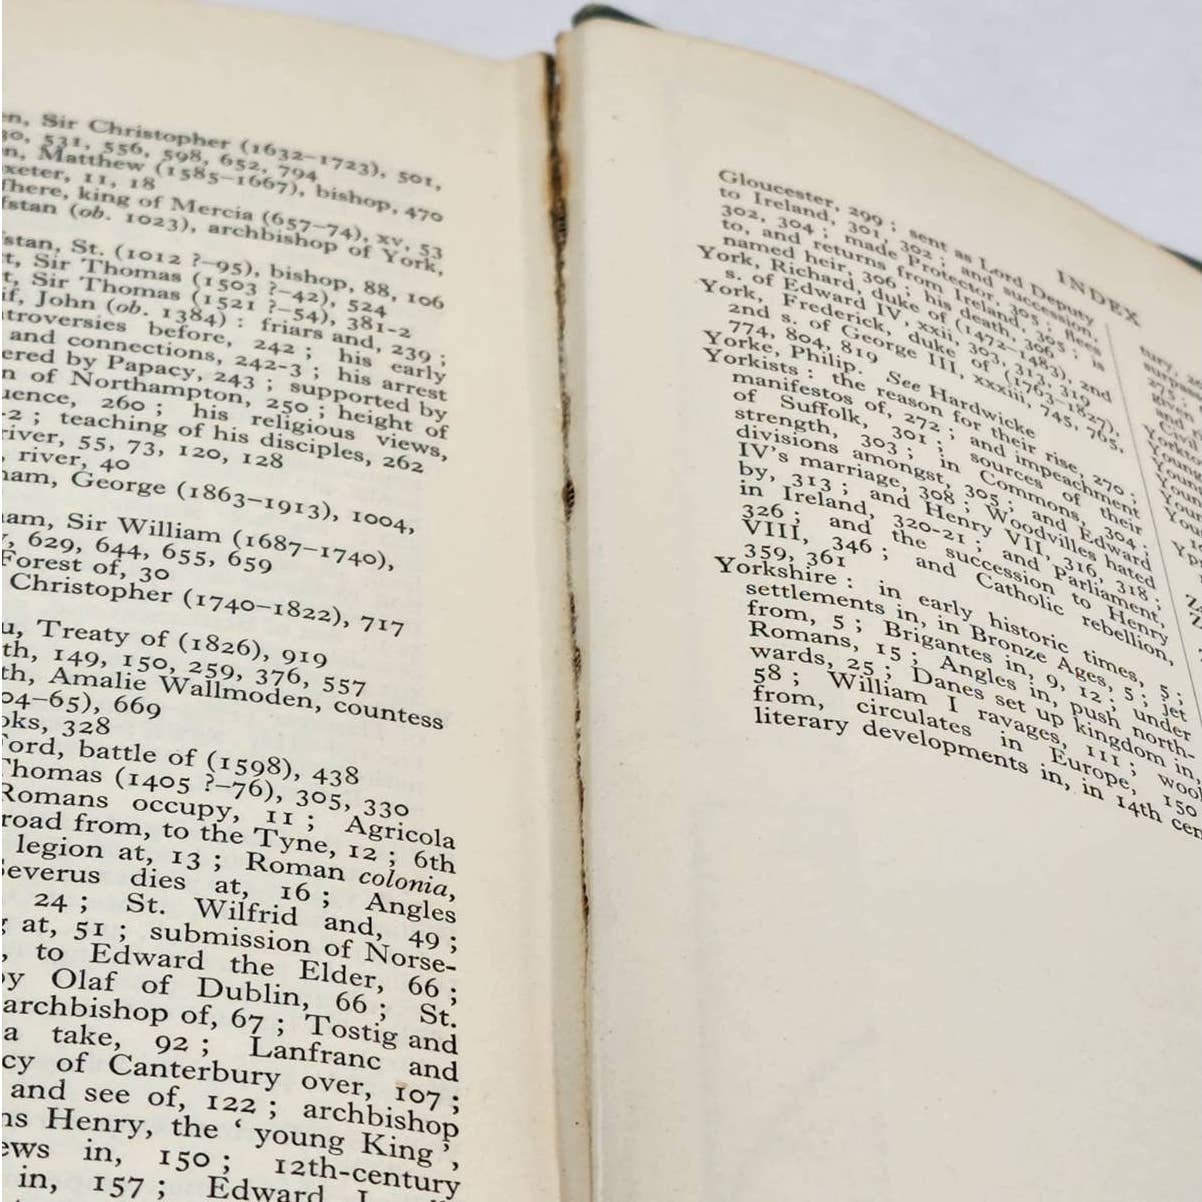 Sir Christopher (1632–1723), 501,
531, 556, 598, 652, 794
Matthew (1585–1667), bishop, 470
11, 18
king of Mercia (657–74), xv, 53
(ob. 1023), archbishop of York,
St. (1012 ?–95), bishop, 88, 106
Sir Thomas (1503 ?–42), 524
Sir Thomas (1521 ?–54), 381-2
John (ob. 1384) : friars and, 239 ;
before, 242 ; his early
and connections, 242-3 ; his arrest
by Papacy, 243 ; supported by
of Northampton, 250 ; height of
260 ; his religious views,
-2 ; teaching of his disciples, 262
river, 55, 73, 120, 128
river, 40
George (1863–1913), 1004,
Sir William (1687–1740),
629, 644, 655, 659
Forest of, 30
Christopher (1740–1822), 717
Treaty of (1826), 919
149, 150, 259, 376, 557
Amalie Wallmoden, countess
04–65), 669
328
battle of (1598), 438
Thomas (1405 ?–76), 305, 330
Romans occupy, 11 ; Agricola
road from, to the Tyne, 12 ; 6th
legion at, 13 ; Roman colonia,
Severus dies at, 16 ; Angles
24 ; St. Wilfrid and, 49 ;
at, 51 ; submission of Norse-
to Edward the Elder, 66 ;
by Olaf of Dublin, 66 ; St.
archbishop of, 67 ; Tostig and
take, 92 ; Lanfranc and
of Canterbury over, 107 ;
and see of, 122 ; archbishop
Henry, the ‘ young King ’,
in, 150 ; 12th-century
in, 157 ; Edward
INDEX
Gloucester, 299 ; sent as Lord Deputy
to Ireland, 301, 302 ; and succession,
302, 304 ; made Protector, 305 ; flees
to, and returns from Ireland, 305 ; is
named heir, 306 ; his death, 306
York, Richard, duke of (1472–1483), 2nd
s. of Edward IV, xxii, 303, 313, 319
York, Frederick, duke of (1763–1827),
2nd s. of George III, xxxiii, 745, 765,
774, 804, 819
Yorke, Philip. See Hardwicke
Yorkists : the reason for their rise, 270 ;
manifestos of, 272 ; and impeachment
of Suffolk, 301 ; sources of their
strength, 303 ; in Commons, 304 ;
divisions amongst, 305 ; and Edward
IV's marriage, 308 ; Woodvilles hated
by, 313 ; and Henry VII, 316, 318 ;
in Ireland, 320-21 ; and Parliament,
326 ; and the succession to Henry
VIII, 346 ; and Catholic rebellion,
359, 361
Yorkshire : in early historic times, 5 ;
settlements in, in Bronze Ages, 5 ; jet
from, 5 ; Brigantes in, 9, 12 ; under
Romans, 15 ; Angles in, push north-
wards, 25 ; Danes set up kingdom in,
58 ; William I ravages, 111 ; wool
from, circulates in Europe, 150
literary developments in, in 14th cen